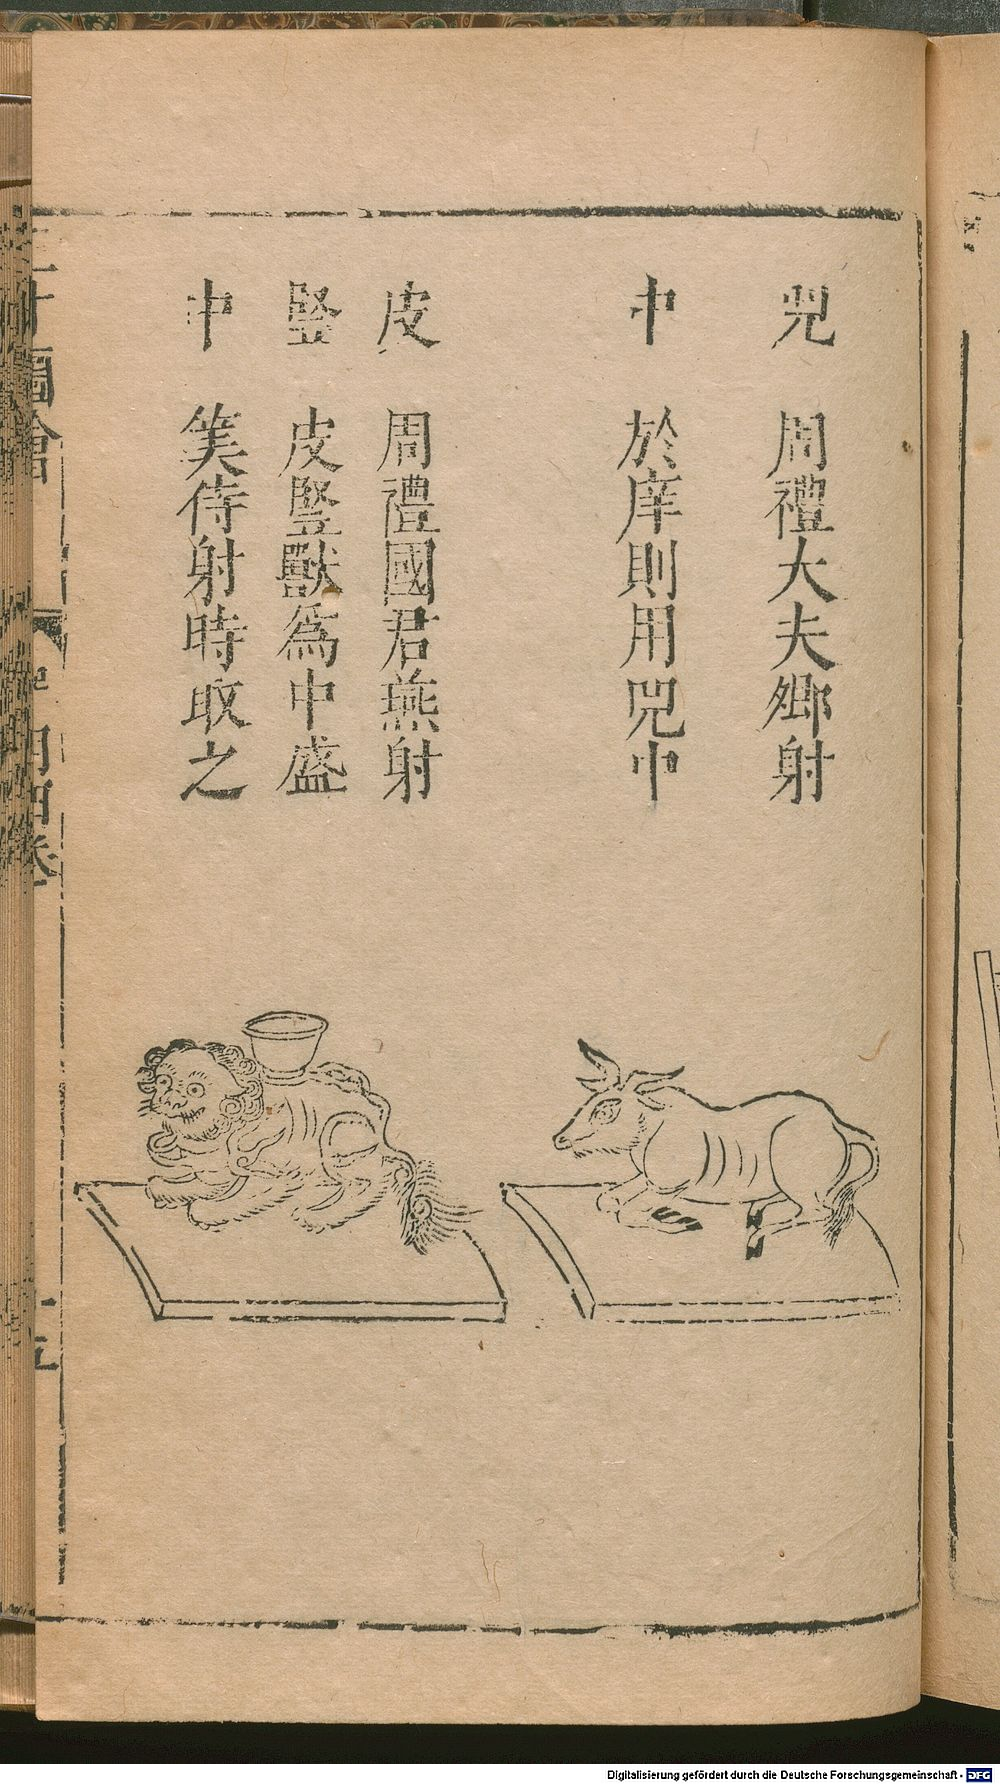 兕　周禮大夫鄉射
中　於庠則用兕中
皮　周禮國君燕射
竪　皮竪獸爲中盛
中　筭侍射時取之
三才圖會
四卷
十五
Digitalisierung gefördert durch die Deutsche Forschungsgemeinschaft - DFG